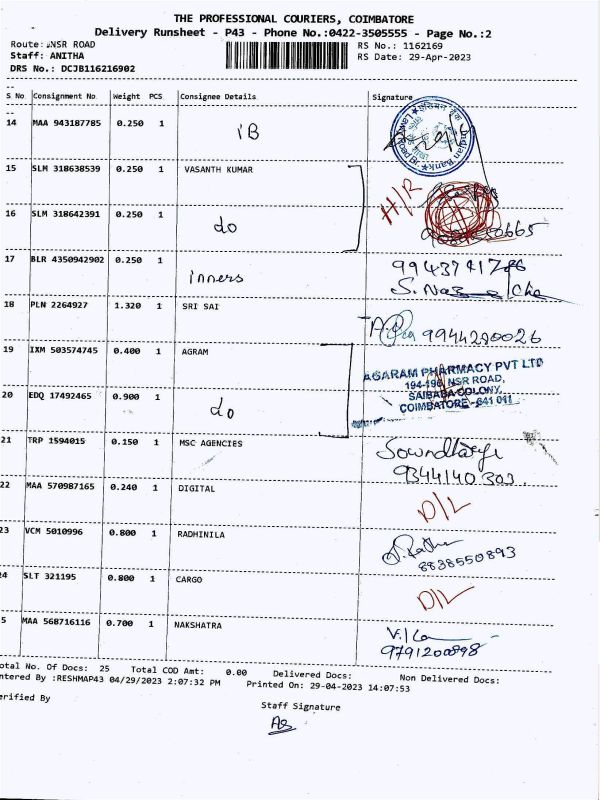 THE PROFESSIONAL COURIERS, COIMBATORE
Delivery Runsheet - P43 - Phone No.:0422-3505555 - Page No.:2
Route: NSR ROAD RS No.: 1162169
Staff: ANITHA RS Date: 29-Apr-2023
DRS No.: DCJB116216902
S.No. Consignment No. Weight PCS Consignee Details Signature
14 MAA 943187785 0.250 1 iB
15 SLM 318638539 0.250 1 VASANTH KUMAR H/R
16 SLM 318642391 0.250 1 do
17 BLR 4350942902 0.250 1 inners
18 PLN 2264927 1.320 1 SRI SAI 9944290026
19 IXM 503574745 0.400 1 AGRAM
AGARAM PHARMACY PVT LTD
194-196, NSR ROAD,
SAIBABA COLONY,
COIMBATORE - 641 011
20 EDQ 17492465 0.900 1 do
21 TRP 1594015 0.150 1 MSC AGENCIES Sowndharya
9344140303.
22 MAA 570987165 0.240 1 DIGITAL D/L
23 VCM 5010996 0.800 1 RADHINILA
8838550893
24 SLT 321195 0.800 1 CARGO D/L
5 MAA 568716116 0.700 1 NAKSHATRA
9791200898
otal No. Of Docs: 25 Total COD Amt: 0.00 Delivered Docs: Non Delivered Docs:
ntered By :RESHMAP43 04/29/2023 2:07:32 PM Printed On: 29-04-2023 14:07:53
erified By Staff Signature